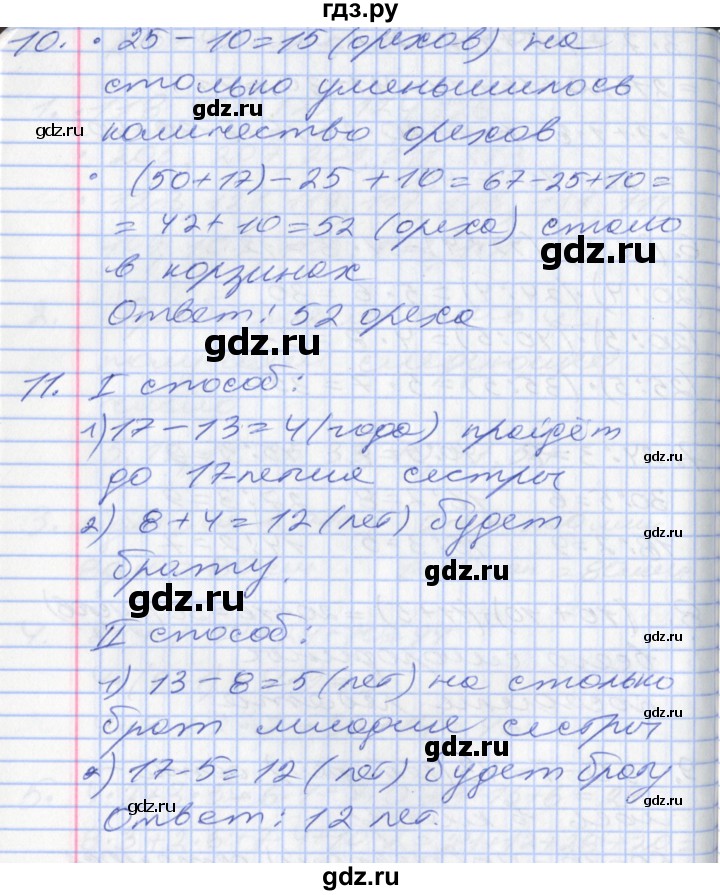 гдз.ру
10. • 25 - 10 = 15 (орехов) на
столько уменьшилось
gdz.ru
gdz.ru
количество орехов
• (50 + 17) - 25 + 10 = 67 - 25 + 10 =
= 42 + 10 = 52 (ореха) стало
gdz.ru
в корзинах
Ответ: 52 ореха
gdz.ru
11. I способ:
1) 17 - 13 = 4 (года) пройдёт
gdz.ru
до 17-летия сестры
2) 8 + 4 = 12 (лет) будет
gdz.ru
брату.
gdz.ru
gdz.ru
II способ:
gdz.ru
1) 13 - 8 = 5 (лет) на столько
брат младше сестры
gdz.ru
2) 17 - 5 = 12 (лет) будет брату
Ответ: 12 лет.
gdz.ru
gdz.ru